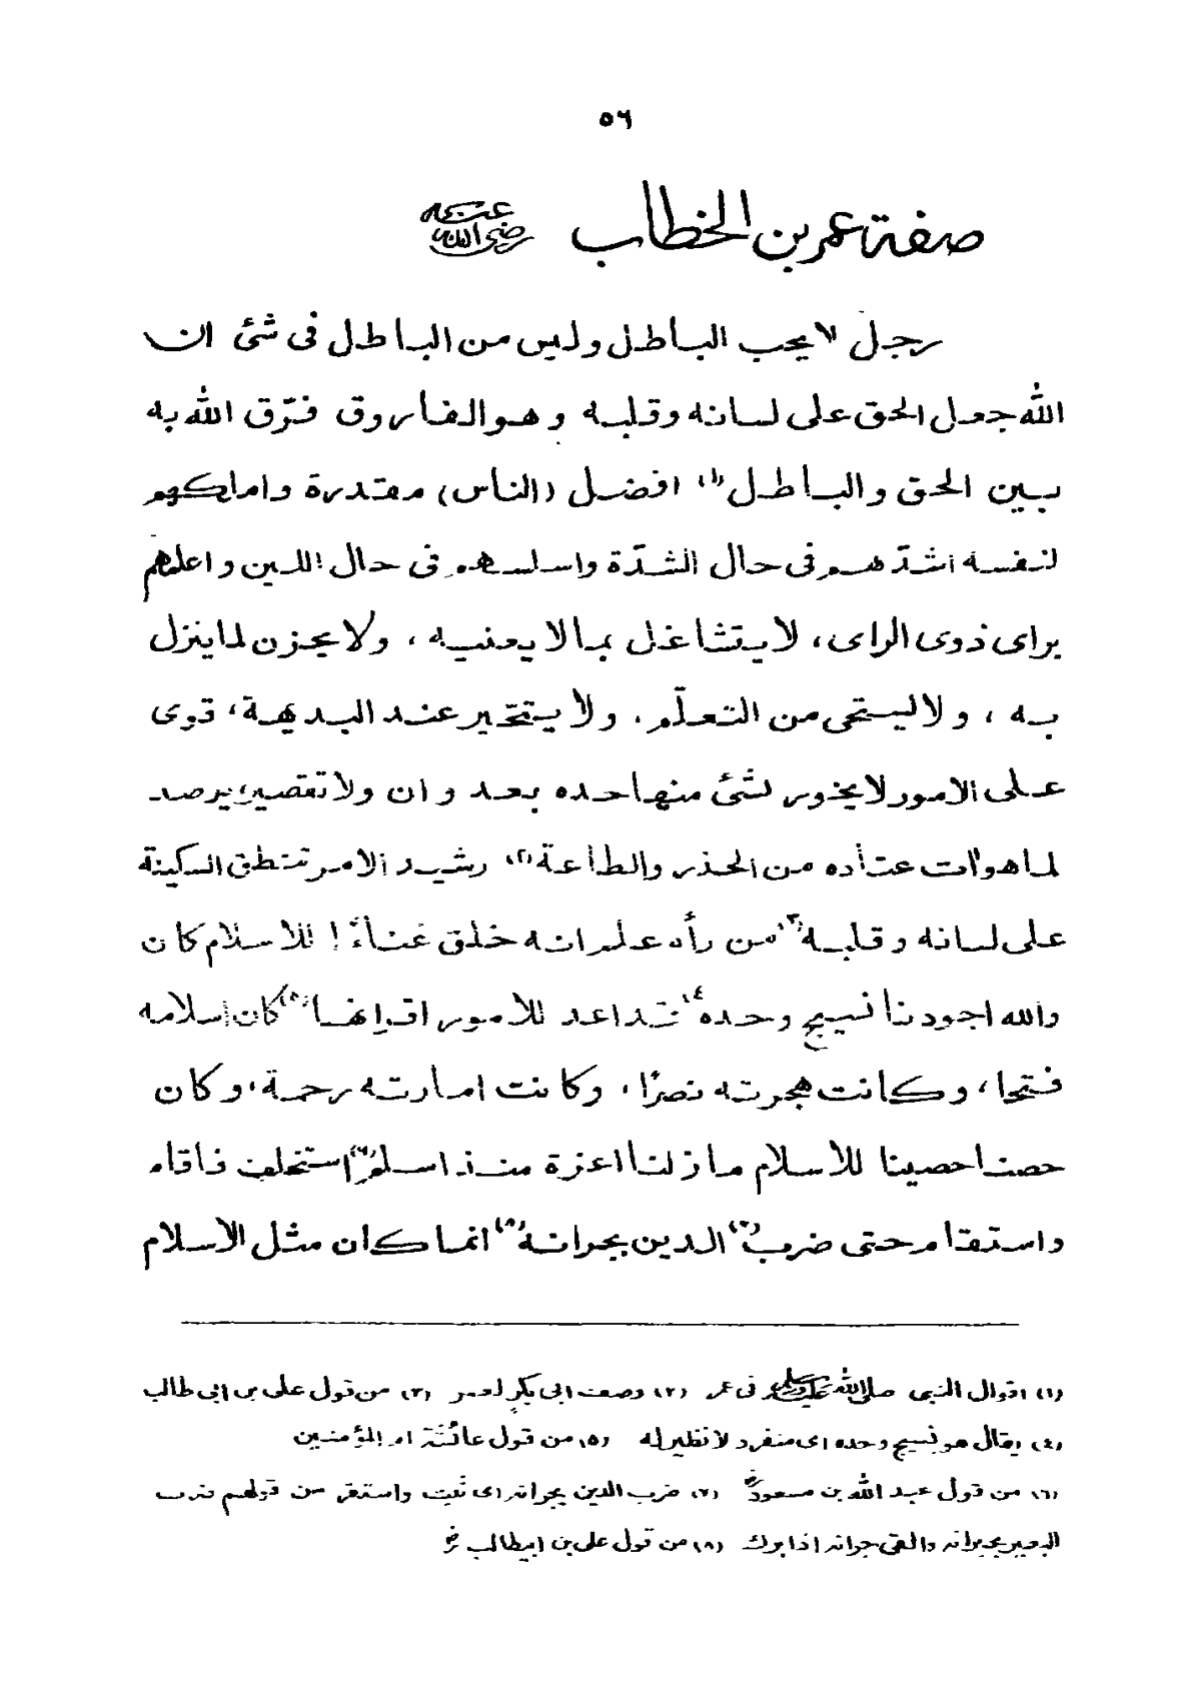 ٥٦
صفة عمر بن الخطاب رضى الله عنه
رجل لا يحب الباطل وليس من الباطل فى شئ ان
الله جعل الحق على لسانه وقلبه وهو الفاروق فرّق الله به
بين الحق والباطل (١) افضل (الناس) مقدرة واملكهم
لنفسه اشدّهم فى حال الشدّة واسلسهم فى حال اللين واعلمهم
براى ذوى الراى، لا يتشاغل بما لا يعنيه ، ولا يحزن لما ينزل
به ، ولا ليستحى من التعلّم، ولا يتحّير عند البديهة، قوى
على الامور لا يخور لشئ منها حده بعدوان ولا تقصير، يرصد
لما هو اٰت عتاده من الحذر والطاعة (٢) رشيد الامر تنطق السكينة
على لسانه وقلبه (٣) من رأه علم انه خلق غناءً! للاسلام كان
والله اجودنا نسيج وحده (٤) قد اعد للامور اقرانها (٥) كان إسلامه
فتحا، وكانت هجرته نصرًا، وكانت امارته رحمة، وكان
حصنا حصينا للاسلام ما زلنا اعزة منذ اسلم (٦) استخلف فاقام
واستقام حتى ضرب (٧) الدين بجرانه (٨) انما كان مثل الاسلام
(١) اقوال النبى صلى الله عليه وسلم فى عمر (٢) وصف ابى بكر لعمر (٣) من قول على بن ابى طالب
(٤) يقال هو نسيج وحده اى منفرد لا نظير له (٥) من قول عائشة ام المؤمنين
(٦) من قول عبد الله بن مسعودؓ (٧) ضرب الدين بجرانه اى ثبت واستقر من قولهم ضرب
البعير بجرانه والقى جرانه اذا برك (٨) من قول على بن ابيطالب رض